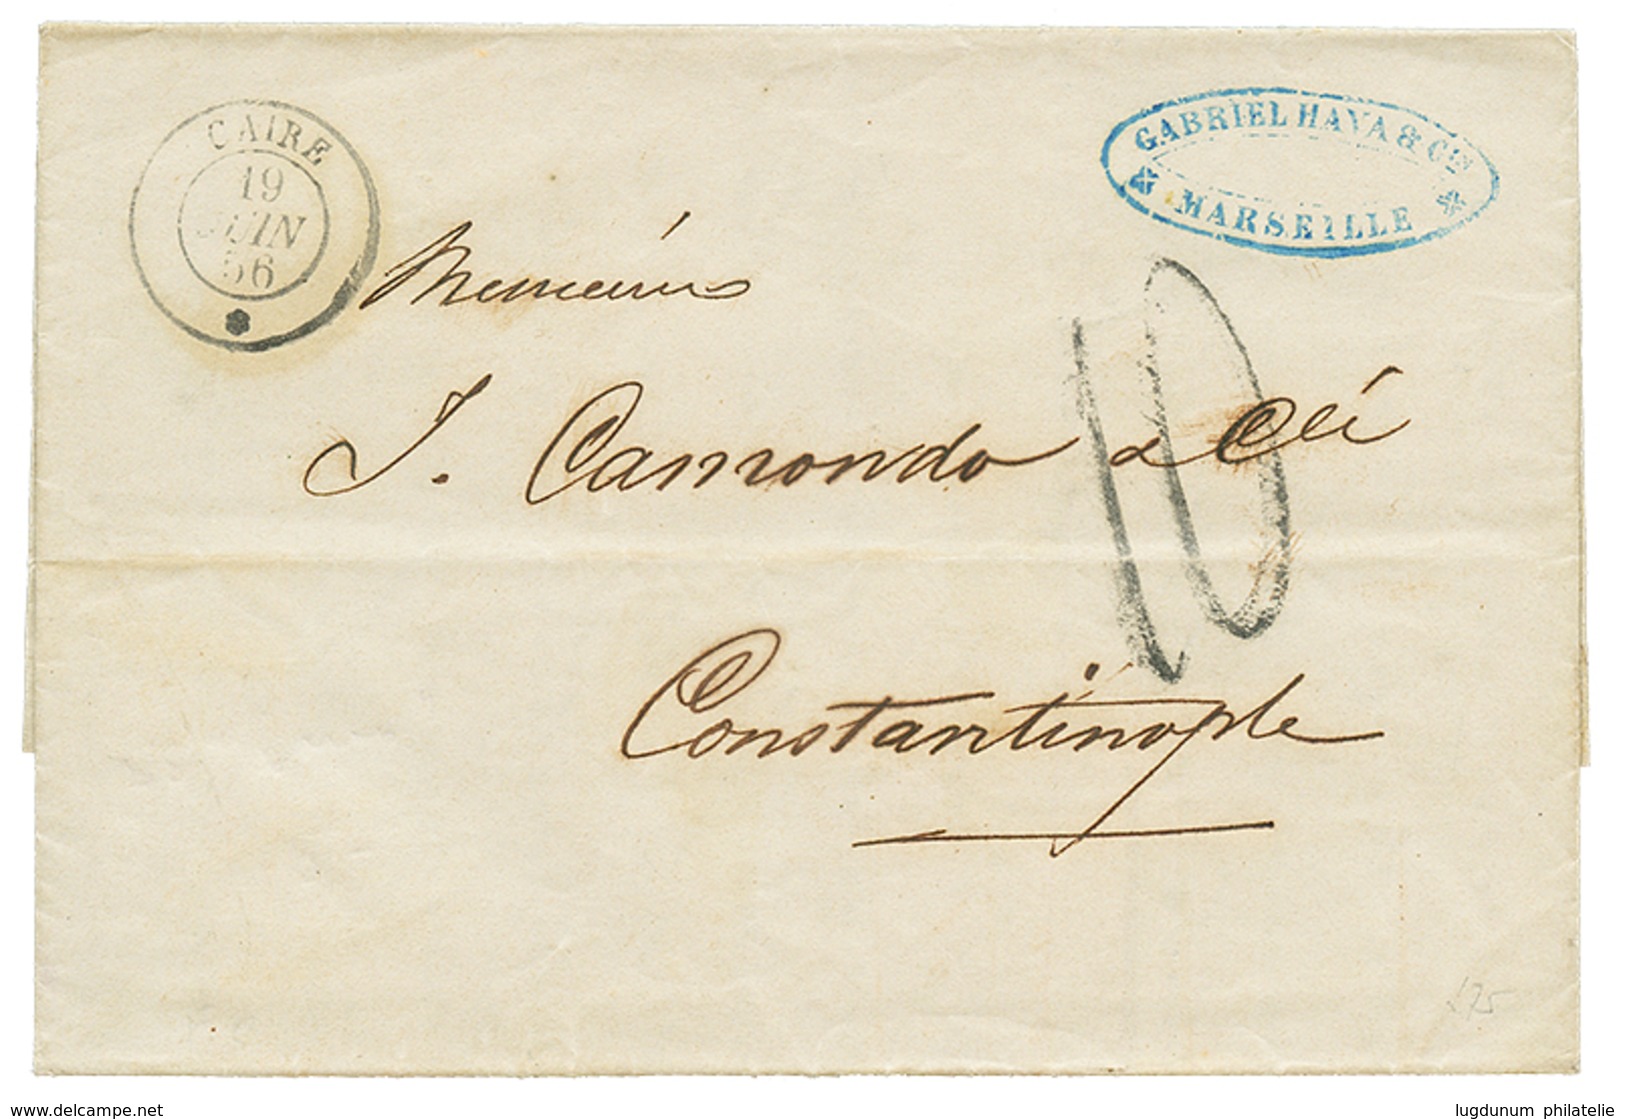 CAIRE
19
JUIN
56
GABRIEL HAVA & Cie
MARSEILLE
Messieurs
J. Camondo & Cie
10
Constantinople
175
www.delcampe.net
lugdunum philatelie